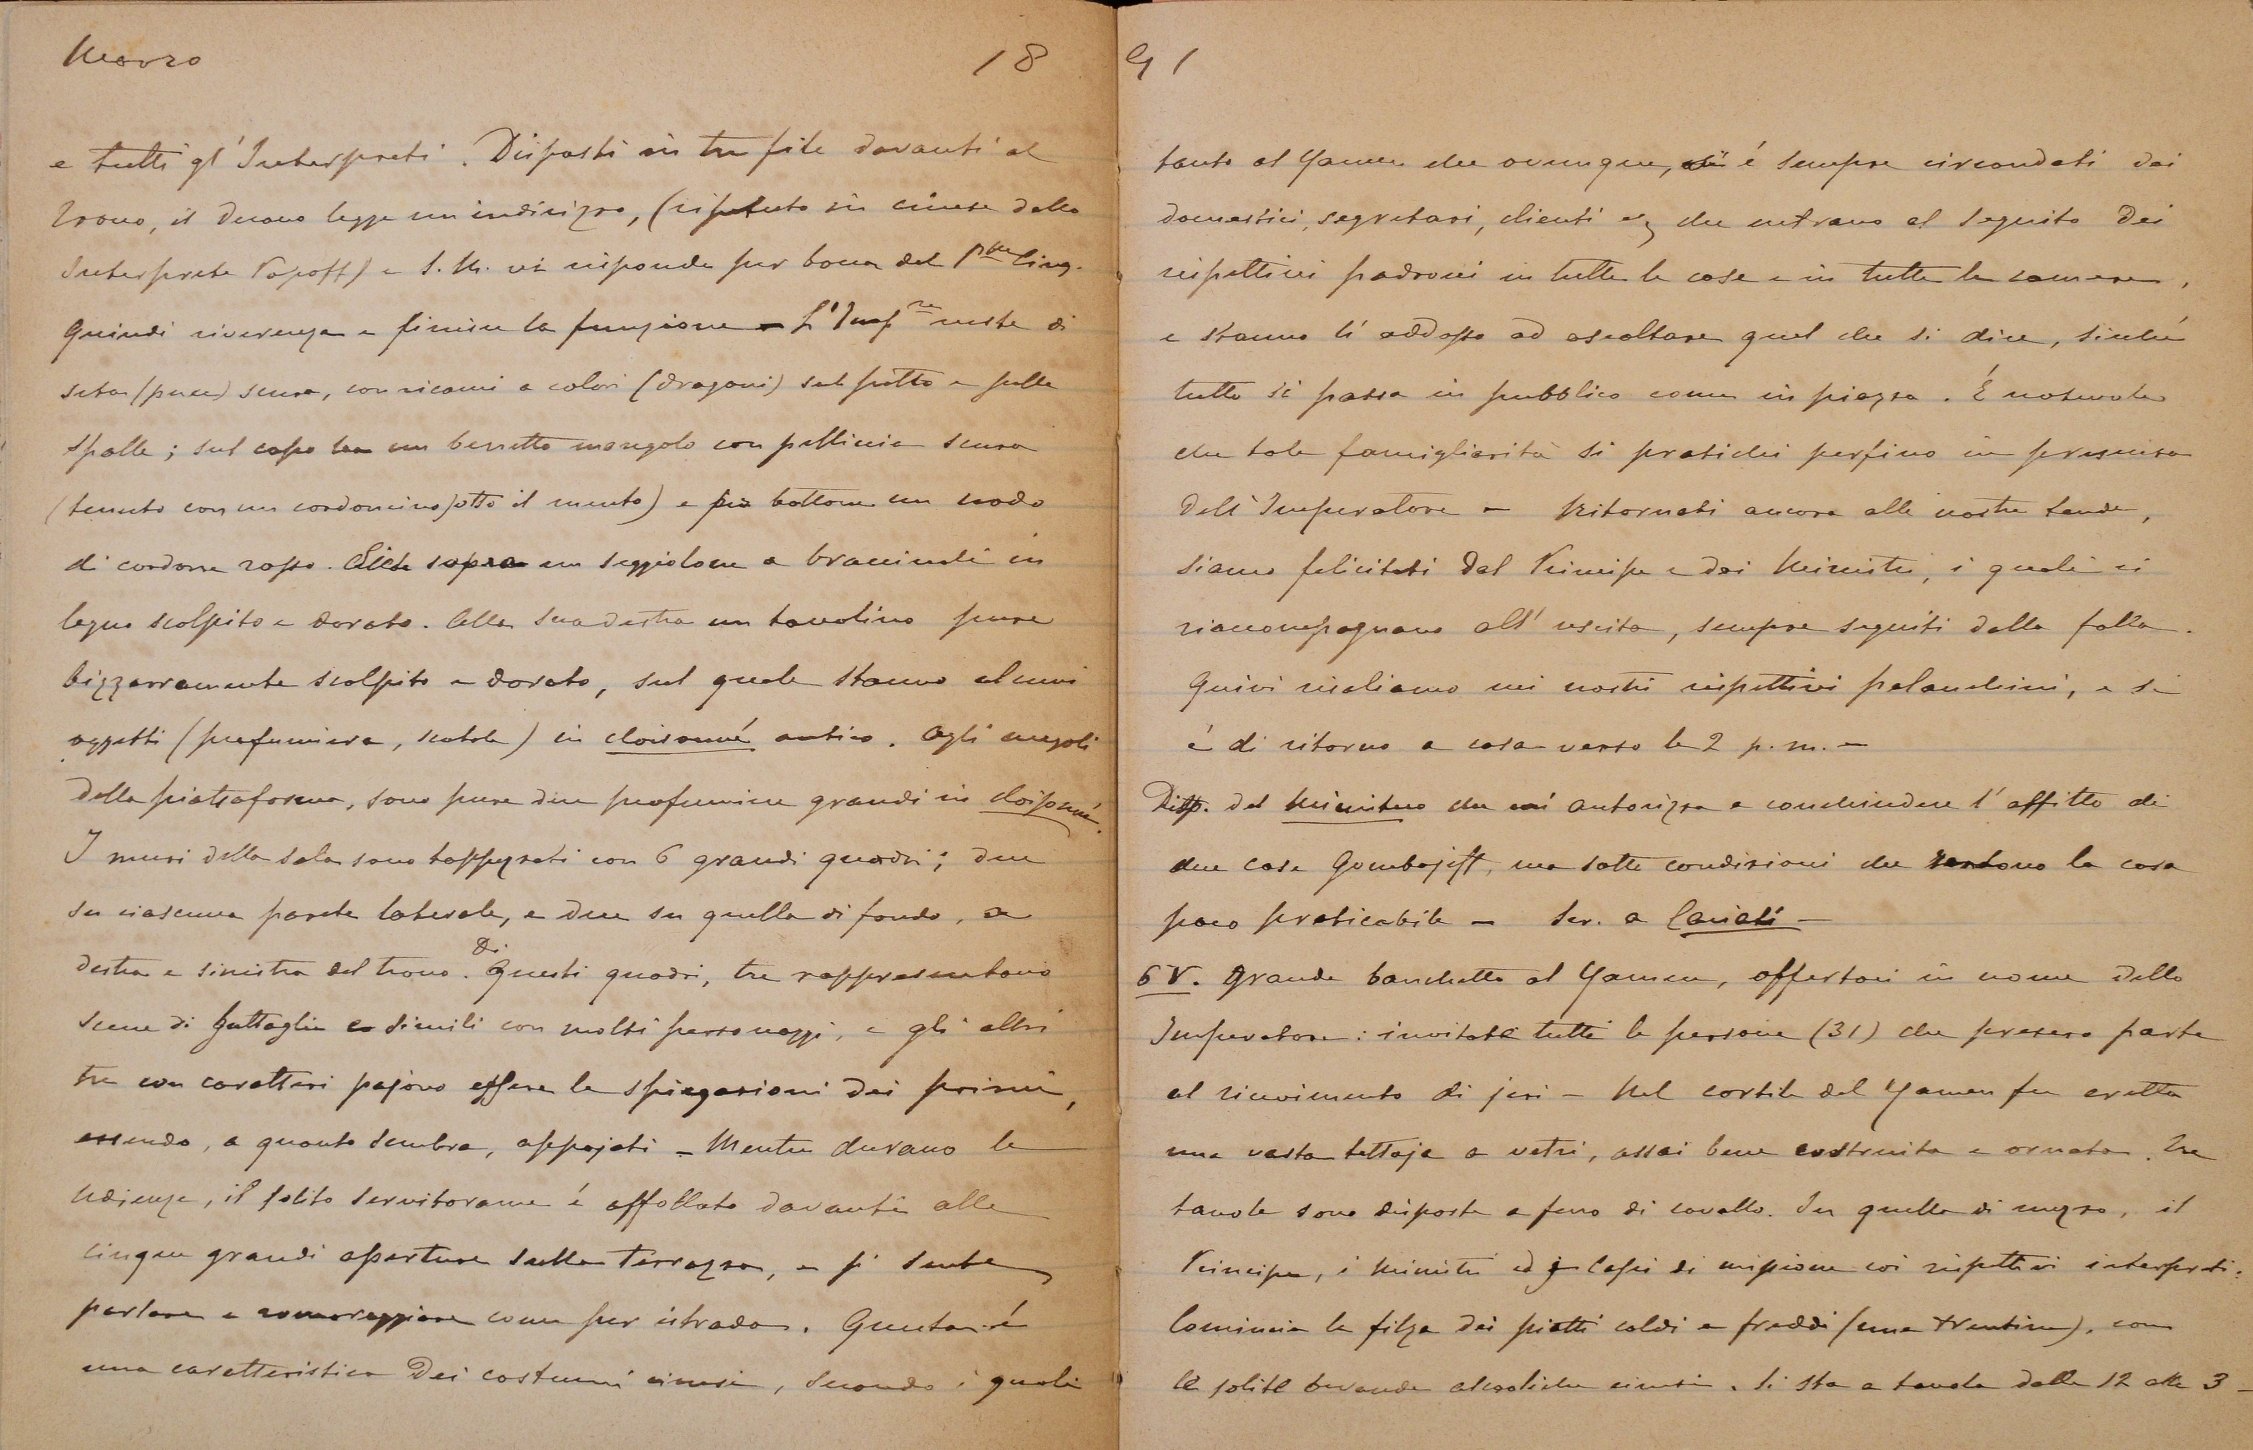 Marzo 18
e tutti gl'Interpreti. Disposti in tre file davanti al
trono, il decano legge un indirizzo, (ripetuto in cinese dallo
Interprete Popoff) e S. M. vi risponde per bocca del Ppe Cing.
Quindi riverenza e finire la funzione – L'Impre veste di
seta (puce) scura, con ricami a colori (dragoni) sul petto e sulle
spalle; sul capo ha un berretto mongolo con pelliccia scura
(tenuto con un cordoncino sotto il mento) e per bottone un nodo
di cordone rosso. Siede sopra un seggiolone a bracciuoli in
legno scolpito e dorato. Alla sua destra un tavolino pure
bizzarramente scolpito e dorato, sul quale stanno alcuni
oggetti (profumiera, scatole) in cloisonné antico. Agli angoli
della piattaforma, sono pure due profumiere grandi in cloisonné.
I muri della sala sono tappezzati con 6 grandi quadri; due
su ciascuna parete laterale, e due su quella di fondo, a
destra e sinistra del trono. Di questi quadri, tre rappresentano
scene di battaglie e simili con molti personaggi, e gli altri
tre con caratteri pajono essere le spiegazioni dei primi,
essendo, a quanto sembra, appajati – Mentre durano le
udienze, il solito servitorame é affollato davanti alle
cinque grandi aperture sulla terrazza, e si sente
parlare e romoreggiare come per istrada. Questa é
una caratteristica dei costumi cinesi, secondo i quali
91
tanto al Yamen che ovunque, si é sempre circondati dai
domestici, segretari, clienti ec, che entrano al seguito dei
rispettivi padroni in tutte le case e in tutte le camere,
e stanno lí addosso ad ascoltare quel che si dice, sicché
tutto si passa in pubblico come in piazza. É notevole
che tale famigliarità si pratichi perfino in presenza
dell'Imperatore – Ritornati ancora alle nostre tende,
siamo felicitati dal Principe e dai Ministri, i quali ci
riaccompagnano all'uscita, sempre seguiti dalla folla.
Quivi risaliamo nei nostri rispettivi palanchini, e si
é di ritorno a casa verso le 2 p. m. –
Disp. del Ministero che mi autorizza a conchiudere l'affitto di
due case Gombojeff, ma sotto condizioni che rendono la cosa
poco praticabile – Scr. a Caniati –
6 V. Grande banchetto al Yamen, offertoci in nome dello
Imperatore: invitati tutti le persone (31) che presero parte
al ricevimento di jeri – Nel cortile del Yamen fu eretta
una vasta tettoja a vetri, assai bene costruita e ornata. Tre
tavole sono disposte a ferro di cavallo. In quella di mezzo, il
Principe, i Ministri ed i Capi di missione coi rispettivi interpreti.
Comincia la filza dei piatti caldi e freddi (una trentina), con
le solite bevande alcooliche cinesi. Si sta a tavola dalle 12 alle 3 –